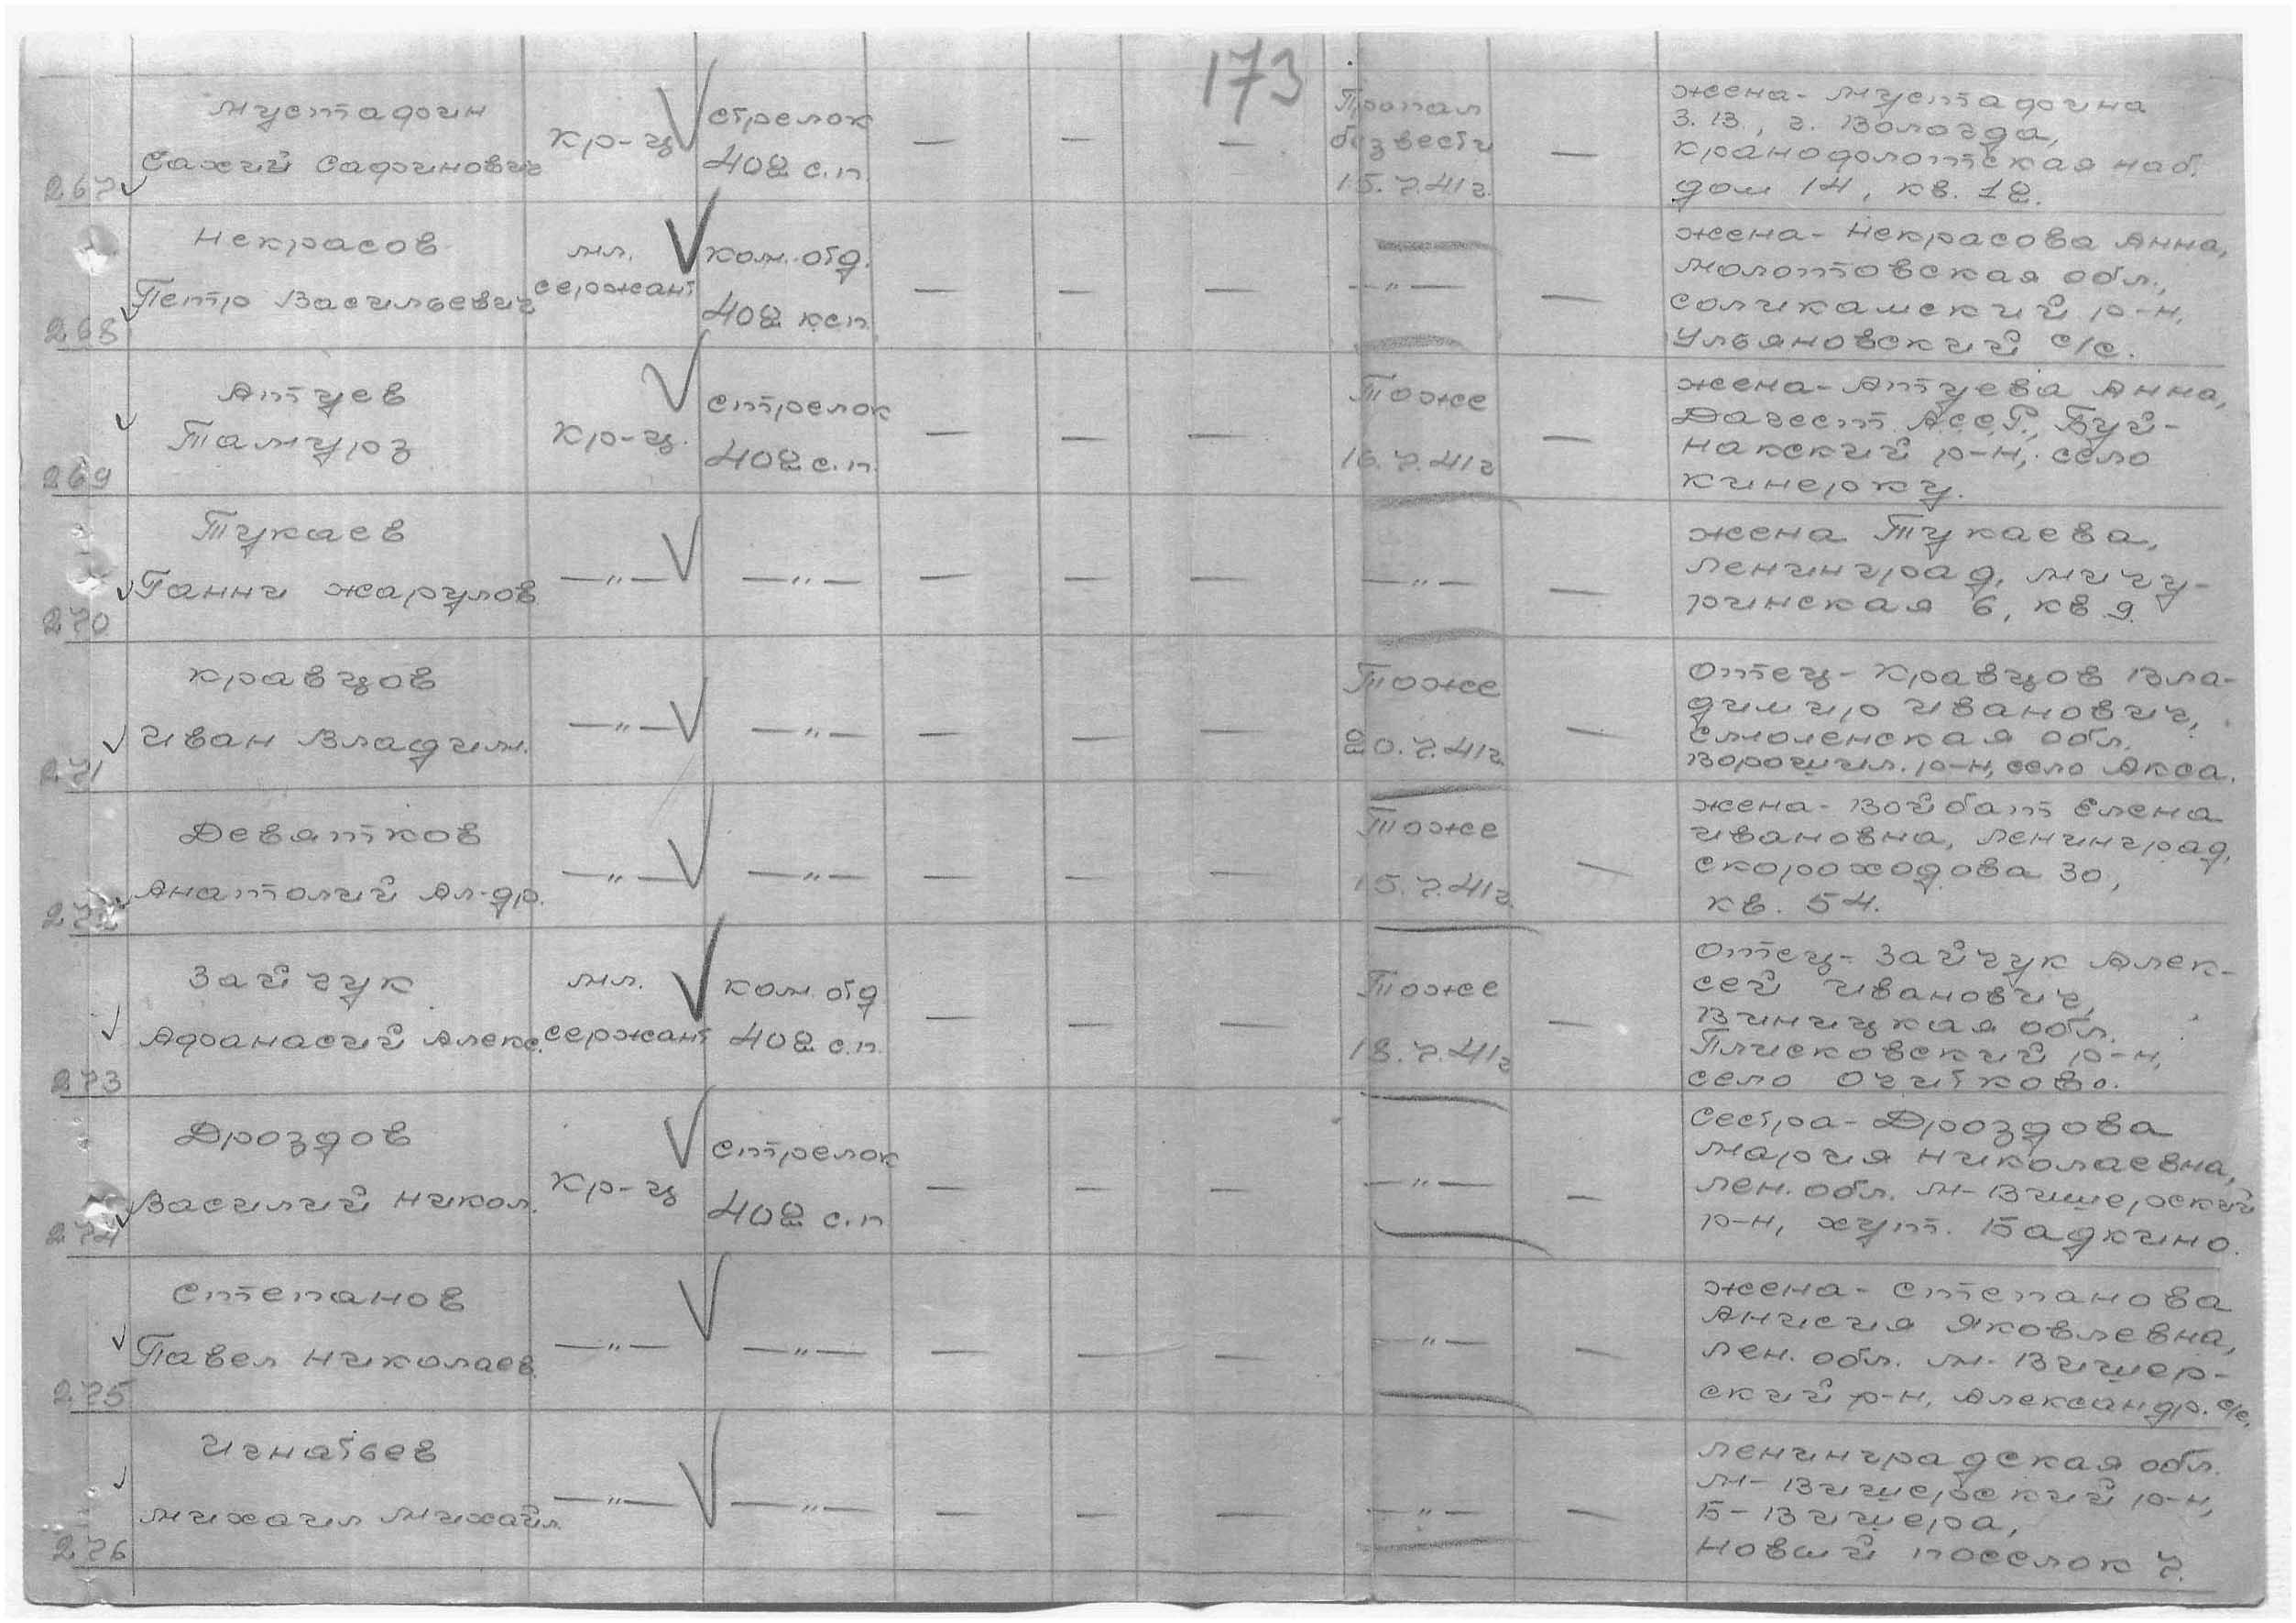 173
Мустафин
Сахий Сафинович
267
кр-ц
стрелок
402 с.п.
—
—
—
Пропал
без вести
15.7.41г.
—
жена - Мустафина
З.В., г. Вологда,
Кранофлотская наб.
дом 14, кв. 12.
Некрасов
Петр Васильевич
268
мл.
сержант
ком. отд.
402 ксп
—
—
—
—"—
—
жена - Некрасова Анна,
Молотовская обл.,
Соликамский р-н,
Ульяновский с/с.
Аптуев
Тамурз
269
кр-ц.
стрелок
402 с.п.
—
—
—
Тоже
16.7.41г
—
жена - Аптуева Анна,
Дагест. АССР., Буй-
накский р-н, село
Кинерку.
Тукаев
Ганни Жарулов
270
—"—
—"—
—
—
—
—"—
—
жена Тукаева,
Ленинград, Мичу-
ринская 6, кв 9.
Кравцов
Иван Владим.
271
—"—
—"—
—
—
—
Тоже
20.7.41г.
—
Отец - Кравцов Вла-
димир Иванович,
Смоленская обл.
Ворошил. р-н, село Акса.
Девятков
Анатолий Ал-др.
272
—"—
—"—
—
—
—
Тоже
15.7.41г.
—
жена - Войбат Елена
Ивановна, Ленинград,
Скороходова 30,
кв. 54.
Зайчук
Афанасий Алекс.
273
мл.
сержант
ком. отд
402 с.п.
—
—
—
Тоже
18.7.41г
—
Отец - Зайчук Алек-
сей Иванович,
Виницкая обл.
Плисковский р-н,
село Очитково.
Дроздов
Василий Никол.
274
кр-ц
стрелок
402 с.п
—
—
—
—"—
—
Сестра - Дроздова
Мария Николаевна,
Лен. обл. М-Вишерский
р-н, хут. Бадкино.
Степанов
Павел Николаев.
275
—"—
—"—
—
—
—
—"—
—
жена - Степанова
Анисия Яковлевна,
Лен. обл. М-Вишер-
ский р-н, Александр. с/с.
Игнатьев
Михаил Михайл.
276
—"—
—"—
—
—
—
—"—
—
Ленинградская обл.
М-Вишерский р-н,
Б-Вишера,
Новый поселок 7.